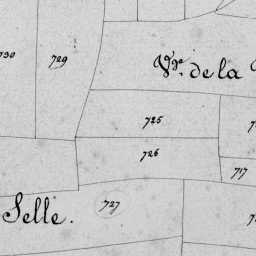 730
729
Vne. de la
725
726
717
Selle.
727